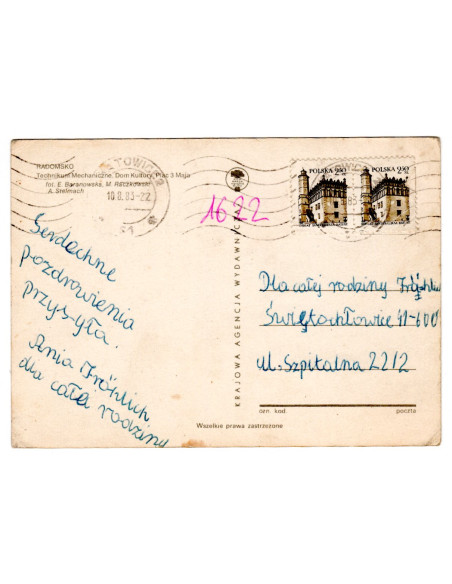 RADOMSKO
Technikum Mechaniczne, Dom Kultury, Plac 3 Maja
fot. E. Baranowska, M. Raczkowski
A. Stelmach
TOWICE
10.8.83-22
1622
POLSKA 2,50
POLSKA 2,50
KRAJOWA AGENCJA WYDAWNICZA
Serdeczne
pozdrowienia
przysyła.
Ania Fröhlich
dla całej rodziny
Dla całej rodziny Fröhlich
Świętochłowice 41-600
ul. Szpitalna 22/2
dzn. kod
poczta
Wszelkie prawa zastrzeżone